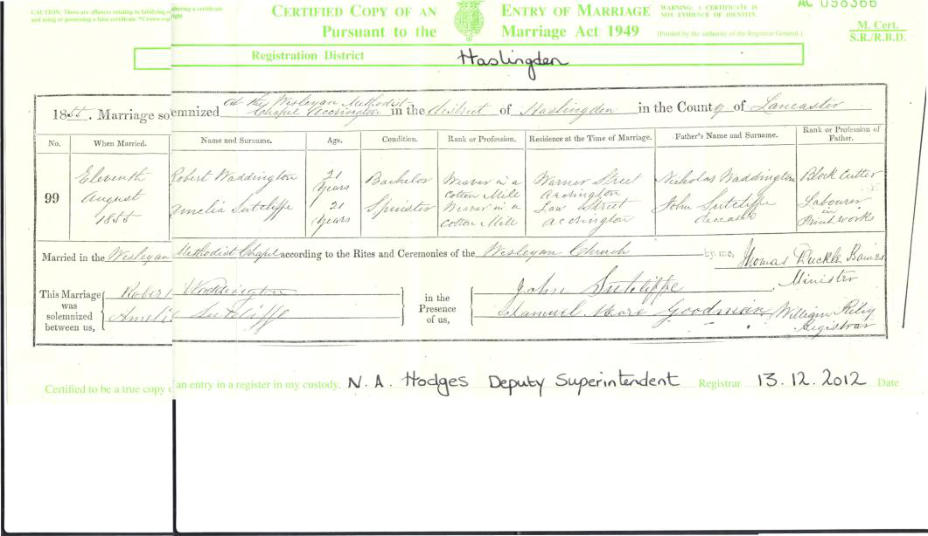 CERTIFIED COPY OF AN ENTRY OF MARRIAGE
Pursuant to the Marriage Act 1949
WARNING: A CERTIFICATE IS
NOT EVIDENCE OF IDENTITY.
AC 098366
M. Cert.
S.R./R.B.D.
Registration District Haslingden
1855. Marriage solemnized at the Wesleyan Methodist Chapel Accrington in the district of Haslingden in the County of Lancaster
No. When Married. Name and Surname. Age. Condition. Rank or Profession. Residence at the Time of Marriage. Father's Name and Surname. Rank or Profession of Father.
99
Eleventh August 1855
Robert Waddington 21 Years Bachelor Weaver in a Cotton Mill Warner Street Accrington Nicholas Waddington Block Cutter
Amelia Sutcliffe 21 Years Spinster Weaver in a Cotton Mill Law Street Accrington John Sutcliffe deceased Labourer in Print works
Married in the Wesleyan Methodist Chapel according to the Rites and Ceremonies of the Wesleyan Church by me, Thomas Minister
This Marriage was solemnized between us,
Robert Waddington
Amelia Sutcliffe
in the Presence of us,
John Sutcliffe
Goodman
William Riley
Registrar
Certified to be a true copy an entry in a register in my custody. N. A. Hodges Deputy Superintendent Registrar 13.12.2012 Date